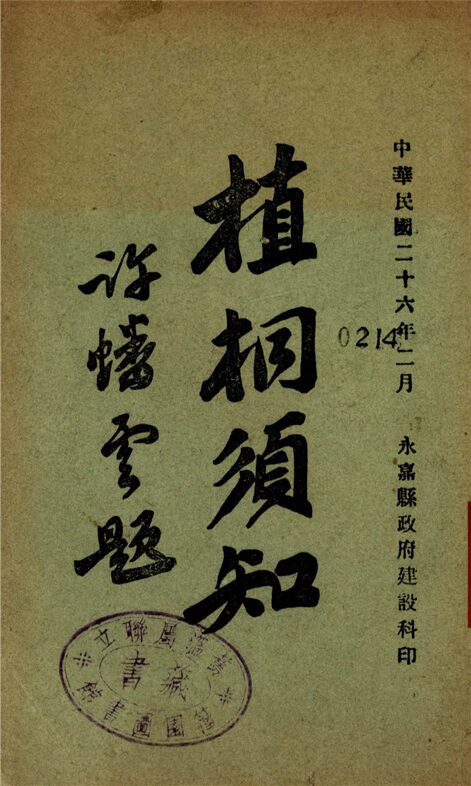 中華民國二十六年二月　永嘉縣政府建設科印
0214
植桐須知
許蟠雲題
舊溫屬聯立
籀園圖書館
藏書